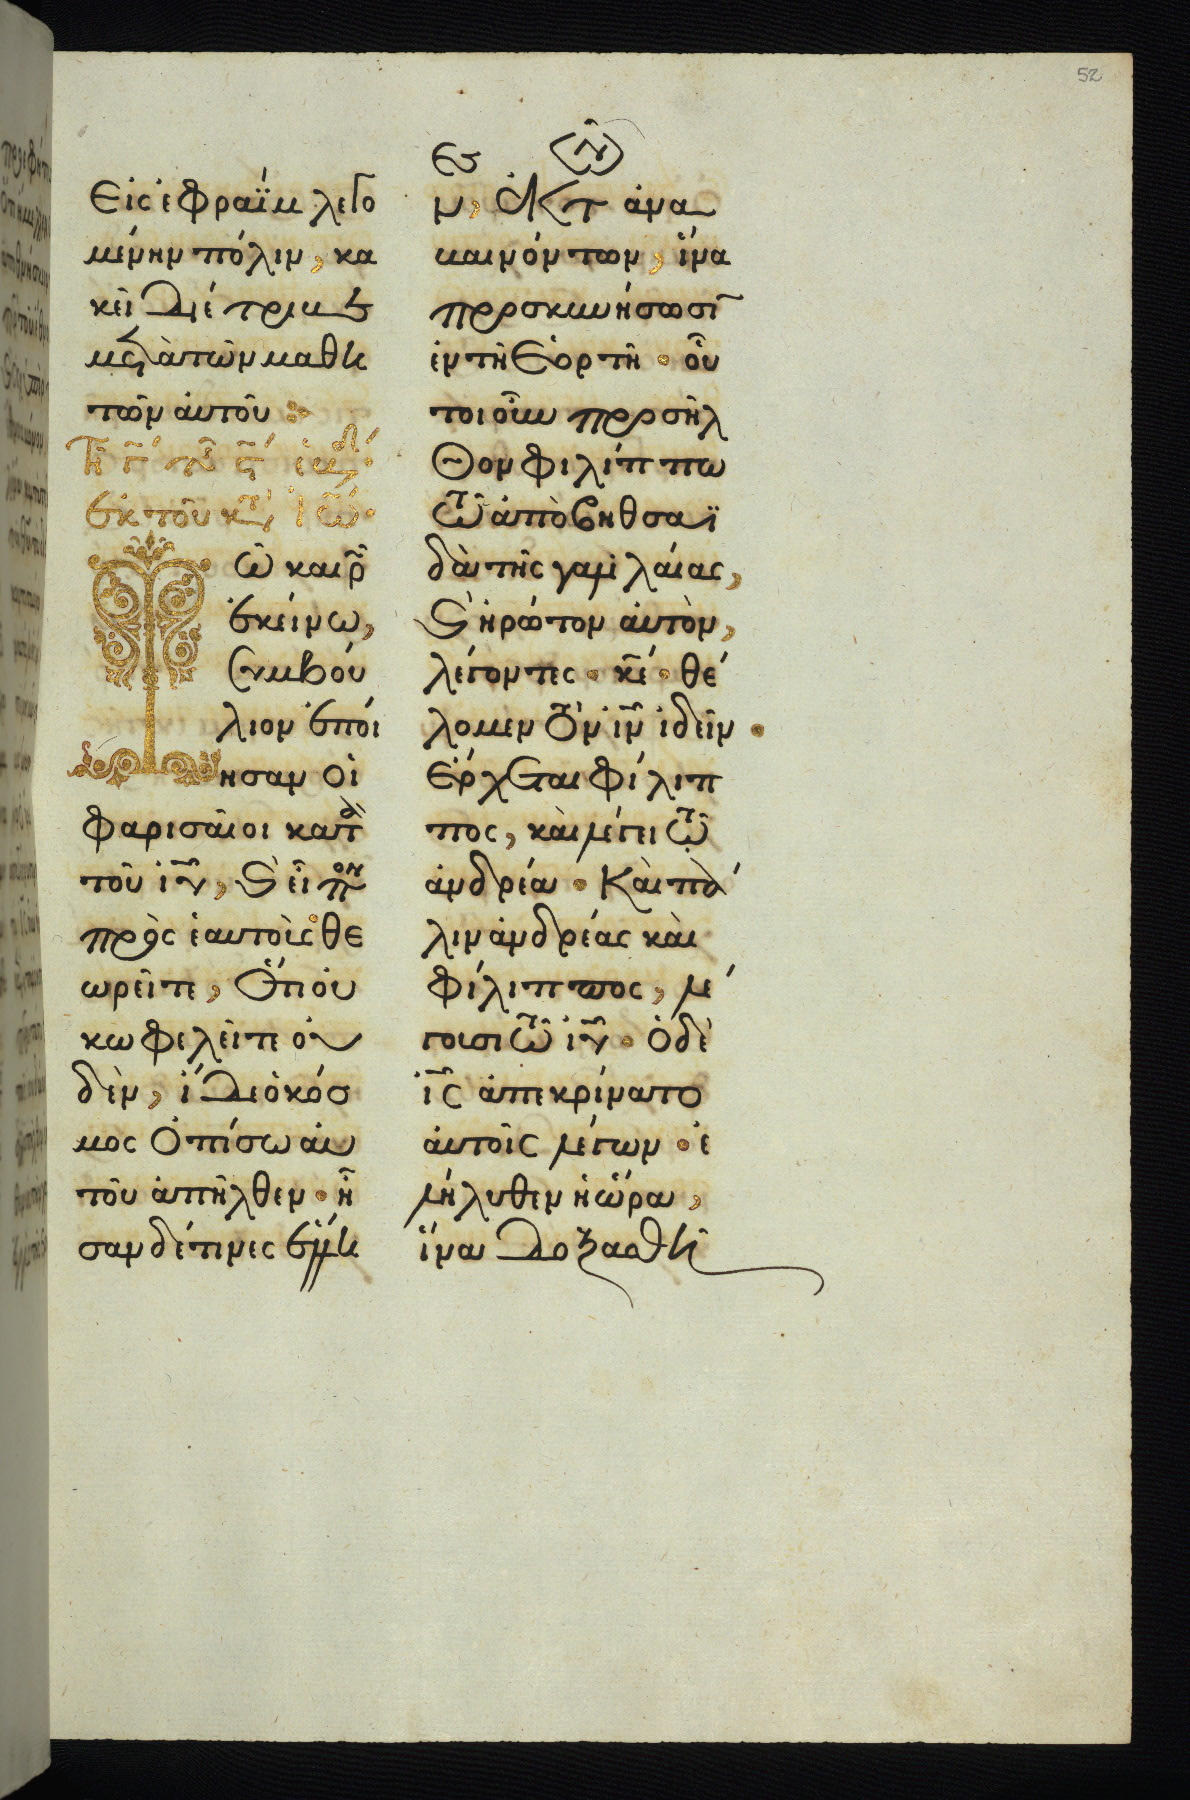 52
ες ν̑
Εἰς ἐφραϊμ λεγο
μένην πόλιν, κα
κεῖ διέτριβε
μετὰ τῶν μαθη
τῶν αὐτοῦ
Τῆ γ̄ τῆς ϛ̄ ἑβδ
ἐκ τοῦ κτ ἰω̅
Τῶ καιρῶ
ἐκείνω,
συμβού
λιον ἐποί
ησαν οἱ
φαρισαῖοι κατὰ
τοῦ ἰυ̅, ϗ εἶπον
πρὸς ἑαυτοὺς θε
ωρεῖτε, ὅτι οὐ
κ ὠφελεῖτε οὐ
δέν, ἴδε ὁ κόσ
μος ὀπίσω αὐ
τοῦ ἀπῆλθεν· ἦ
σαν δέ τινες ἕλλη
ν, ἐκ τ ἀνα
βαινόντων, ἵνα
προσκυνήσωσιν
ἐν τῆ ἑορτῆ· οὗ
τοι οὖν προσῆλ
θον φιλίππω
τῶ ἀπὸ βηθσαϊ
δὰ τῆς γαλιλαίας,
ϗ ἠρώτον αὐτὸν,
λέγοντες· κε̅· θέ
λομεν τὸν ἰν̅ ἰδεῖν·
ἔρχεται φίλιπ
πος, καὶ λέγει τῶ
ἀνδρέα· καὶ πά
λιν ἀνδρέας καὶ
φίλιππος, λέ
γουσι τῶ ἰυ̅· ὁ δὲ
ἰς̅ ἀπεκρίνατο
αὐτοῖς λέγων· ἐ
λήλυθεν ἡ ὥρα,
ἵνα δοξασθῆ